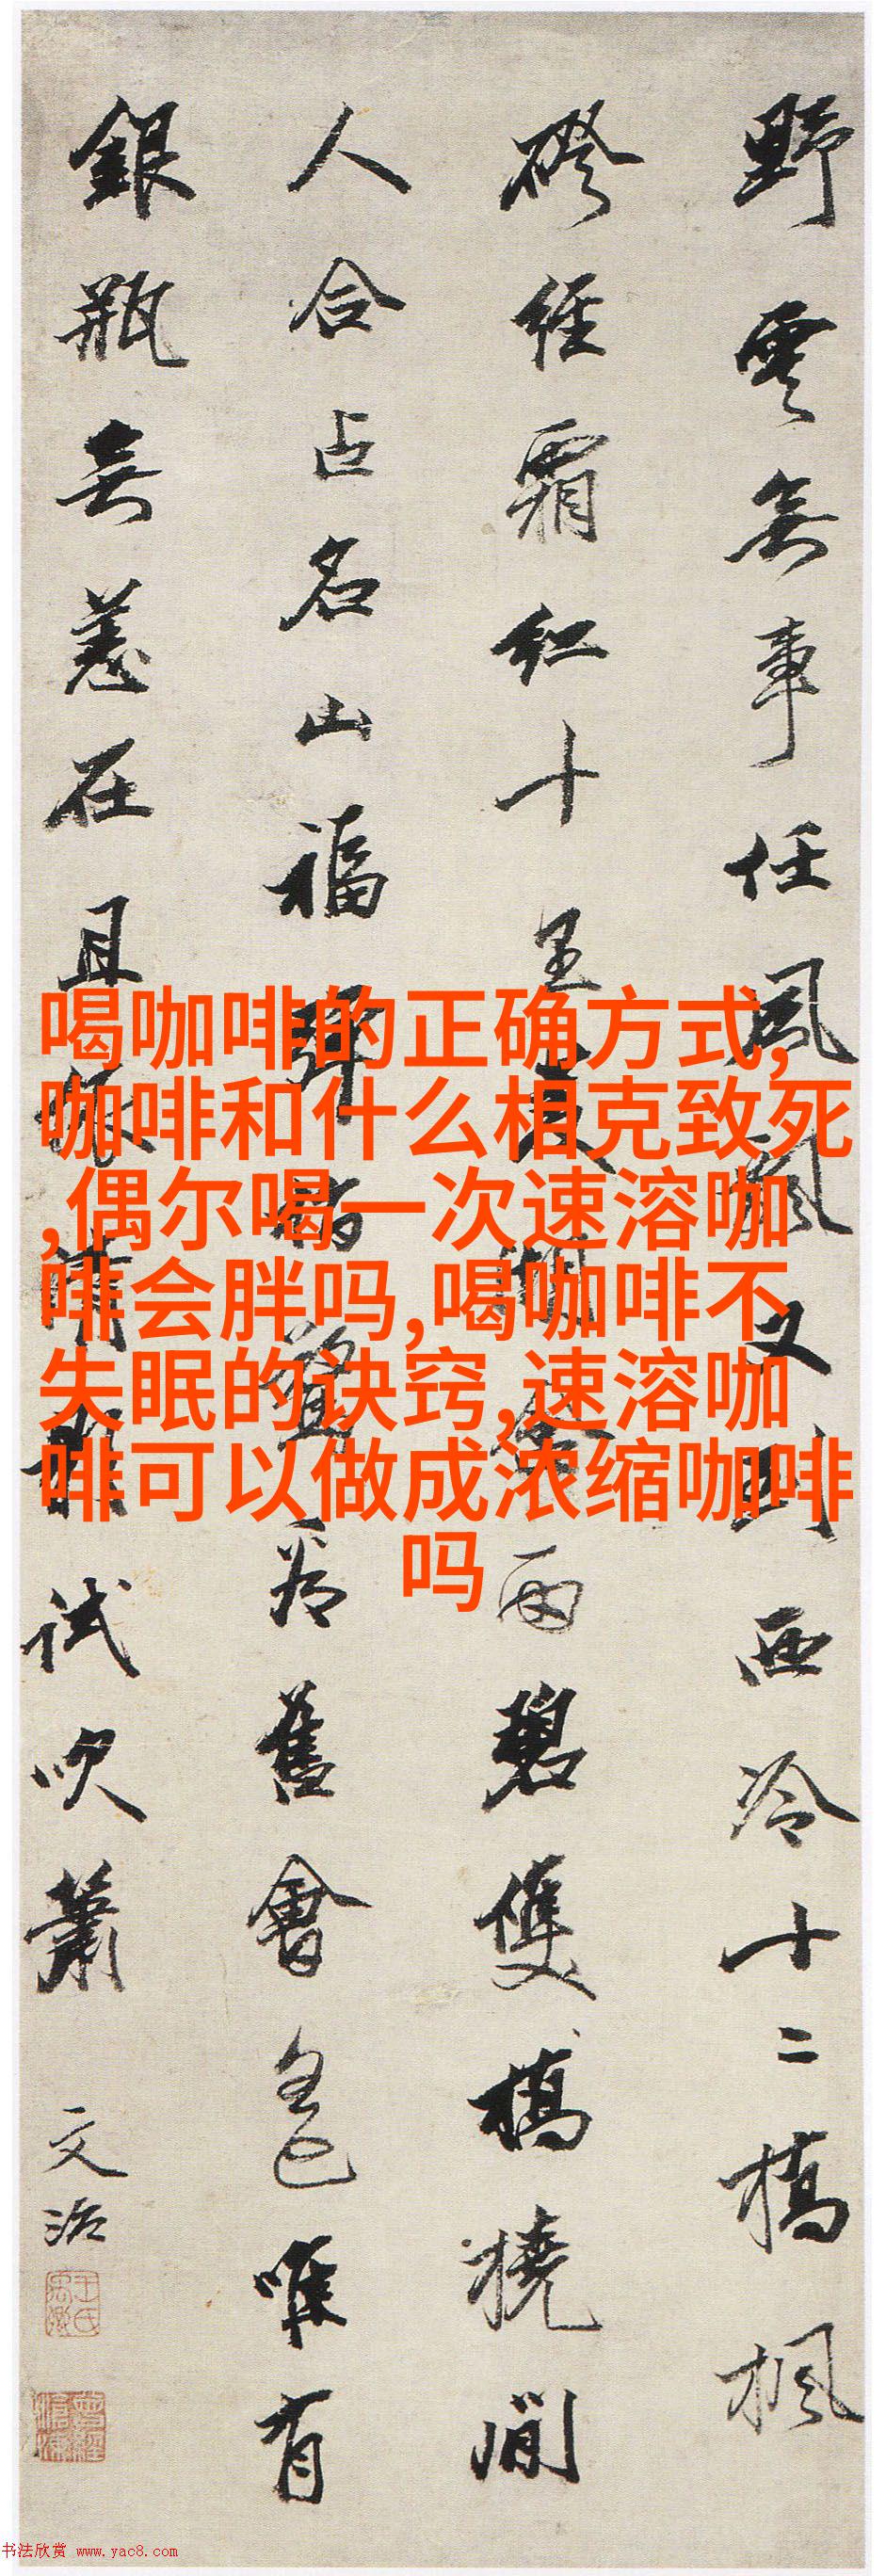 野雲無事任風又到西冷十二橋楓
磴經霜紅十里湖含雨碧雙橋橈閒
人合占名山福彈指驚看舊會唯有
銀瓶無恙在且試吹簫
文治
喝咖啡的正确方式,
咖啡和什么相克致死
,偶尔喝一次速溶咖
啡会胖吗,喝咖啡不
失眠的诀窍,速溶咖
啡可以做成浓缩咖啡
吗
书法欣赏 www.yac8.com